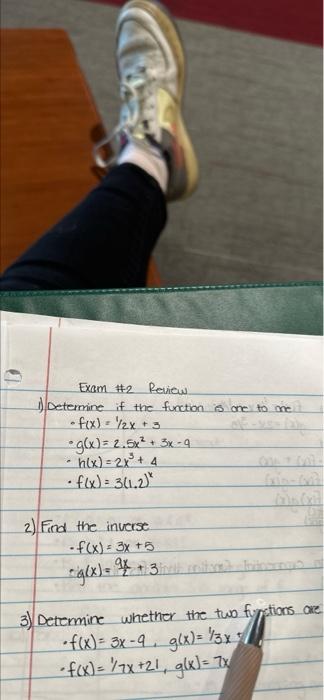 Exam #2 Review
1) Determine if the function is one to one
• f(x) = 1/2x + 3
• g(x) = 2.5x² + 3x - 9
• h(x) = 2x³ + 4
• f(x) = 3(1.2)ˣ
2) Find the inverse
• f(x) = 3x + 5
• g(x) = 9x/2 + 3
3) Determine whether the two functions are
• f(x) = 3x - 9, g(x) = 1/3x
• f(x) = 1/7x + 21, g(x) = 7x